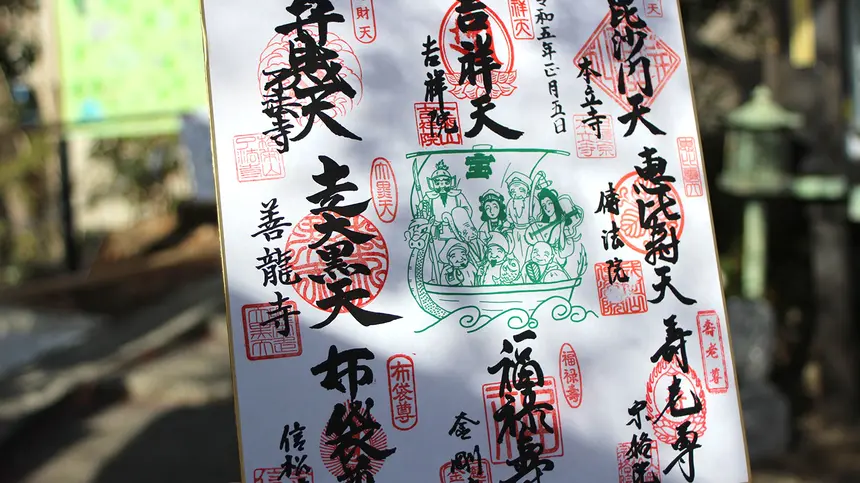 毘沙門天
本立寺
令和五年正月五日
祥天
吉祥天
吉祥院
財天
弁財天
恵比寿天
傳法院
宝
走大黒天
善龍寺
寿老尊
寿老尊
宗格院
福禄寿
福禄寿
金剛
布袋尊
布袋
信松